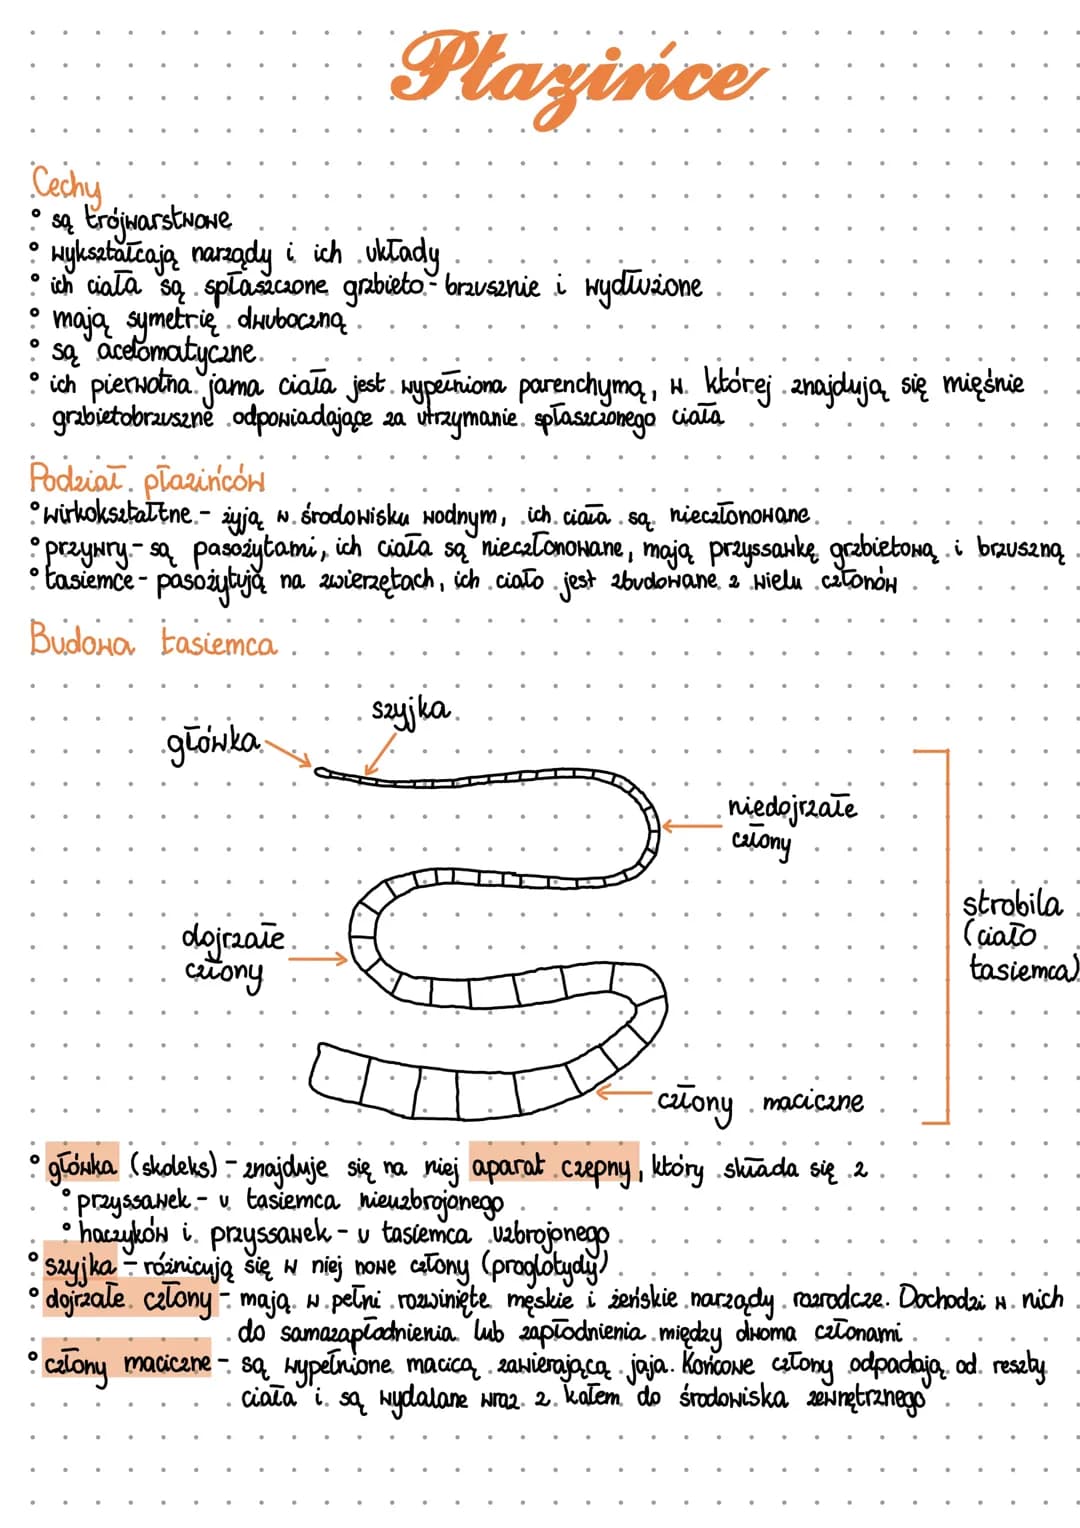 Płazińce
Cechy
° są trójwarstwowe
° wykształcają narządy i ich układy
° ich ciała są spłaszczone grzbieto-brzusznie i wydłużone
° mają symetrię dwuboczną
° są acelomatyczne
° ich pierwotna jama ciała jest wypełniona parenchymą, w której znajdują się mięśnie
grzbietobrzuszne odpowiadające za utrzymanie spłaszczonego ciała
Podział płazińców
° wirkokształtne - żyją w środowisku wodnym, ich ciała są niecztonowane
° przywry - są pasożytami, ich ciała są nieczłonowane, mają przyssawkę grzbietową i brzuszną
° tasiemce - pasożytują na zwierzętach, ich ciało jest zbudowane z wielu członów
Budowa tasiemca
szyjka
główka
niedojrzałe
człony
strobila
(ciało
tasiemca)
dojrzałe
człony
człony maciczne
° główka (skoleks) - znajduje się na niej aparat czepny, który składa się z
° przyssawek - u tasiemca nieuzbrojonego
° haczyków i przyssawek - u tasiemca uzbrojonego
° szyjka - różnicują się w niej nowe człony (proglotydy)
° dojrzałe człony - mają w pełni rozwinięte męskie i żeńskie narządy rozrodcze. Dochodzi w nich
do samozapłodnienia lub zapłodnienia między dwoma członami
° człony maciczne - są wypełnione macicą zawierającą jaja. Końcowe człony odpadają od reszty
ciała i są wydalane wraz z kałem do środowiska zewnętrznego